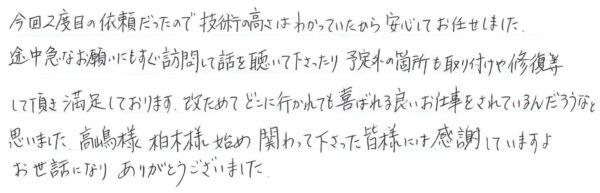 今回2度目の依頼だったので技術の高さはわかっていたから安心してお任せしました。
途中急なお願いにもすぐ訪問して話を聴いて下さったり予定外の箇所も取り付けや修復等
して頂き満足しております。改ためてどこに行かれても喜ばれる良いお仕事をされているんだろうなと
思いました。高嶋様 柏木様 始め関わって下さった皆様には感謝していますよ
お世話になりありがとうございました。